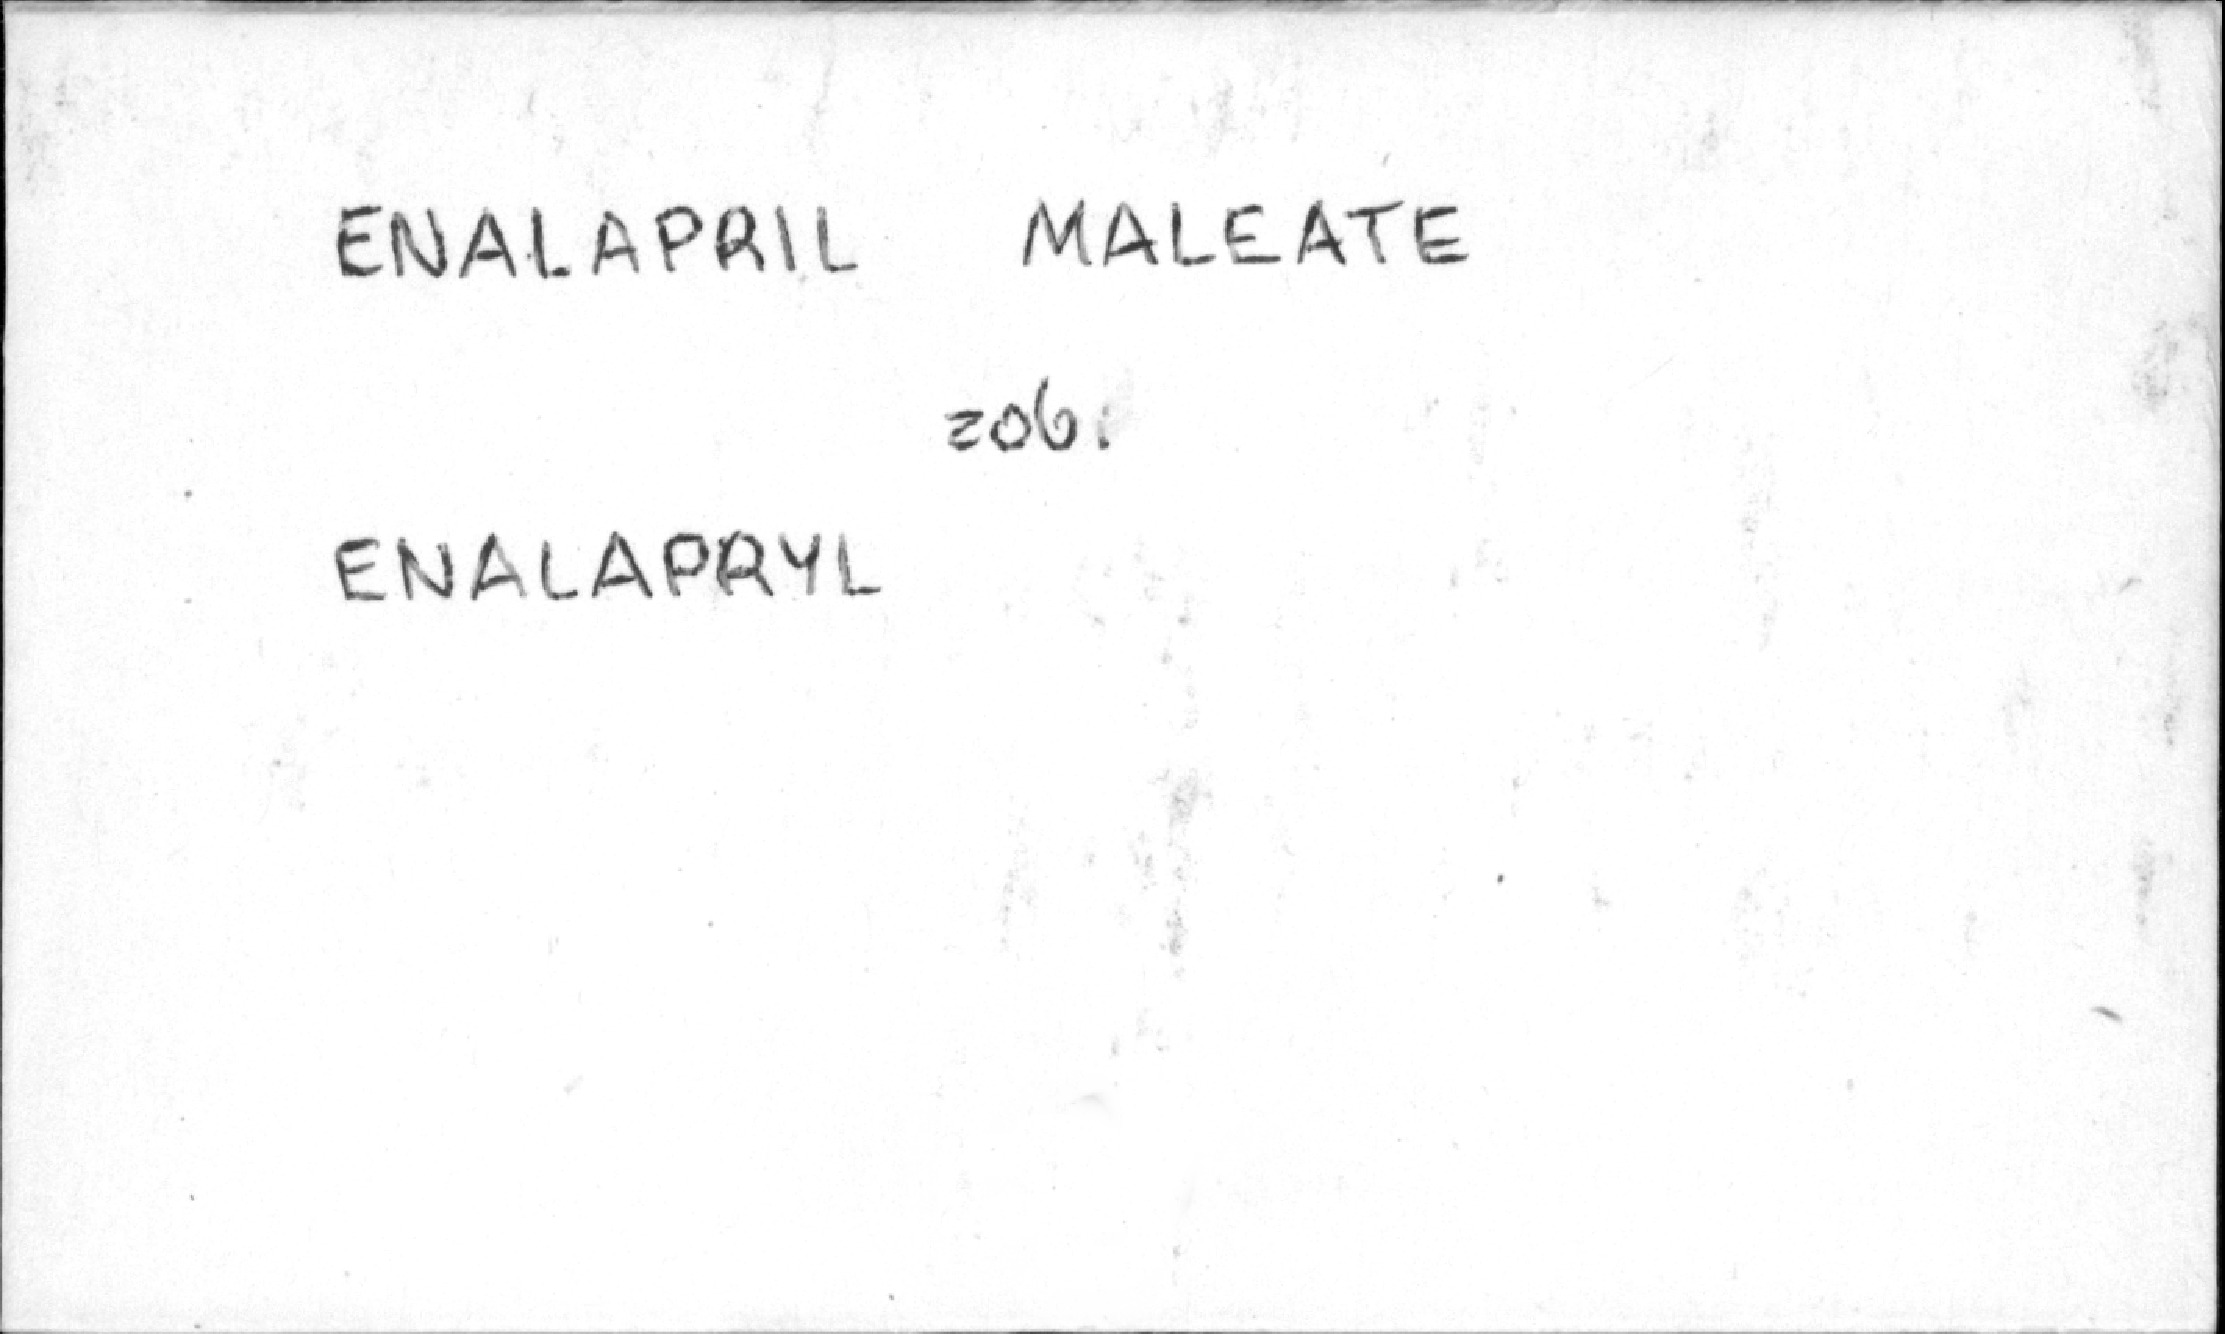 ENALAPRIL MALEATE
zob.
ENALAPRYL